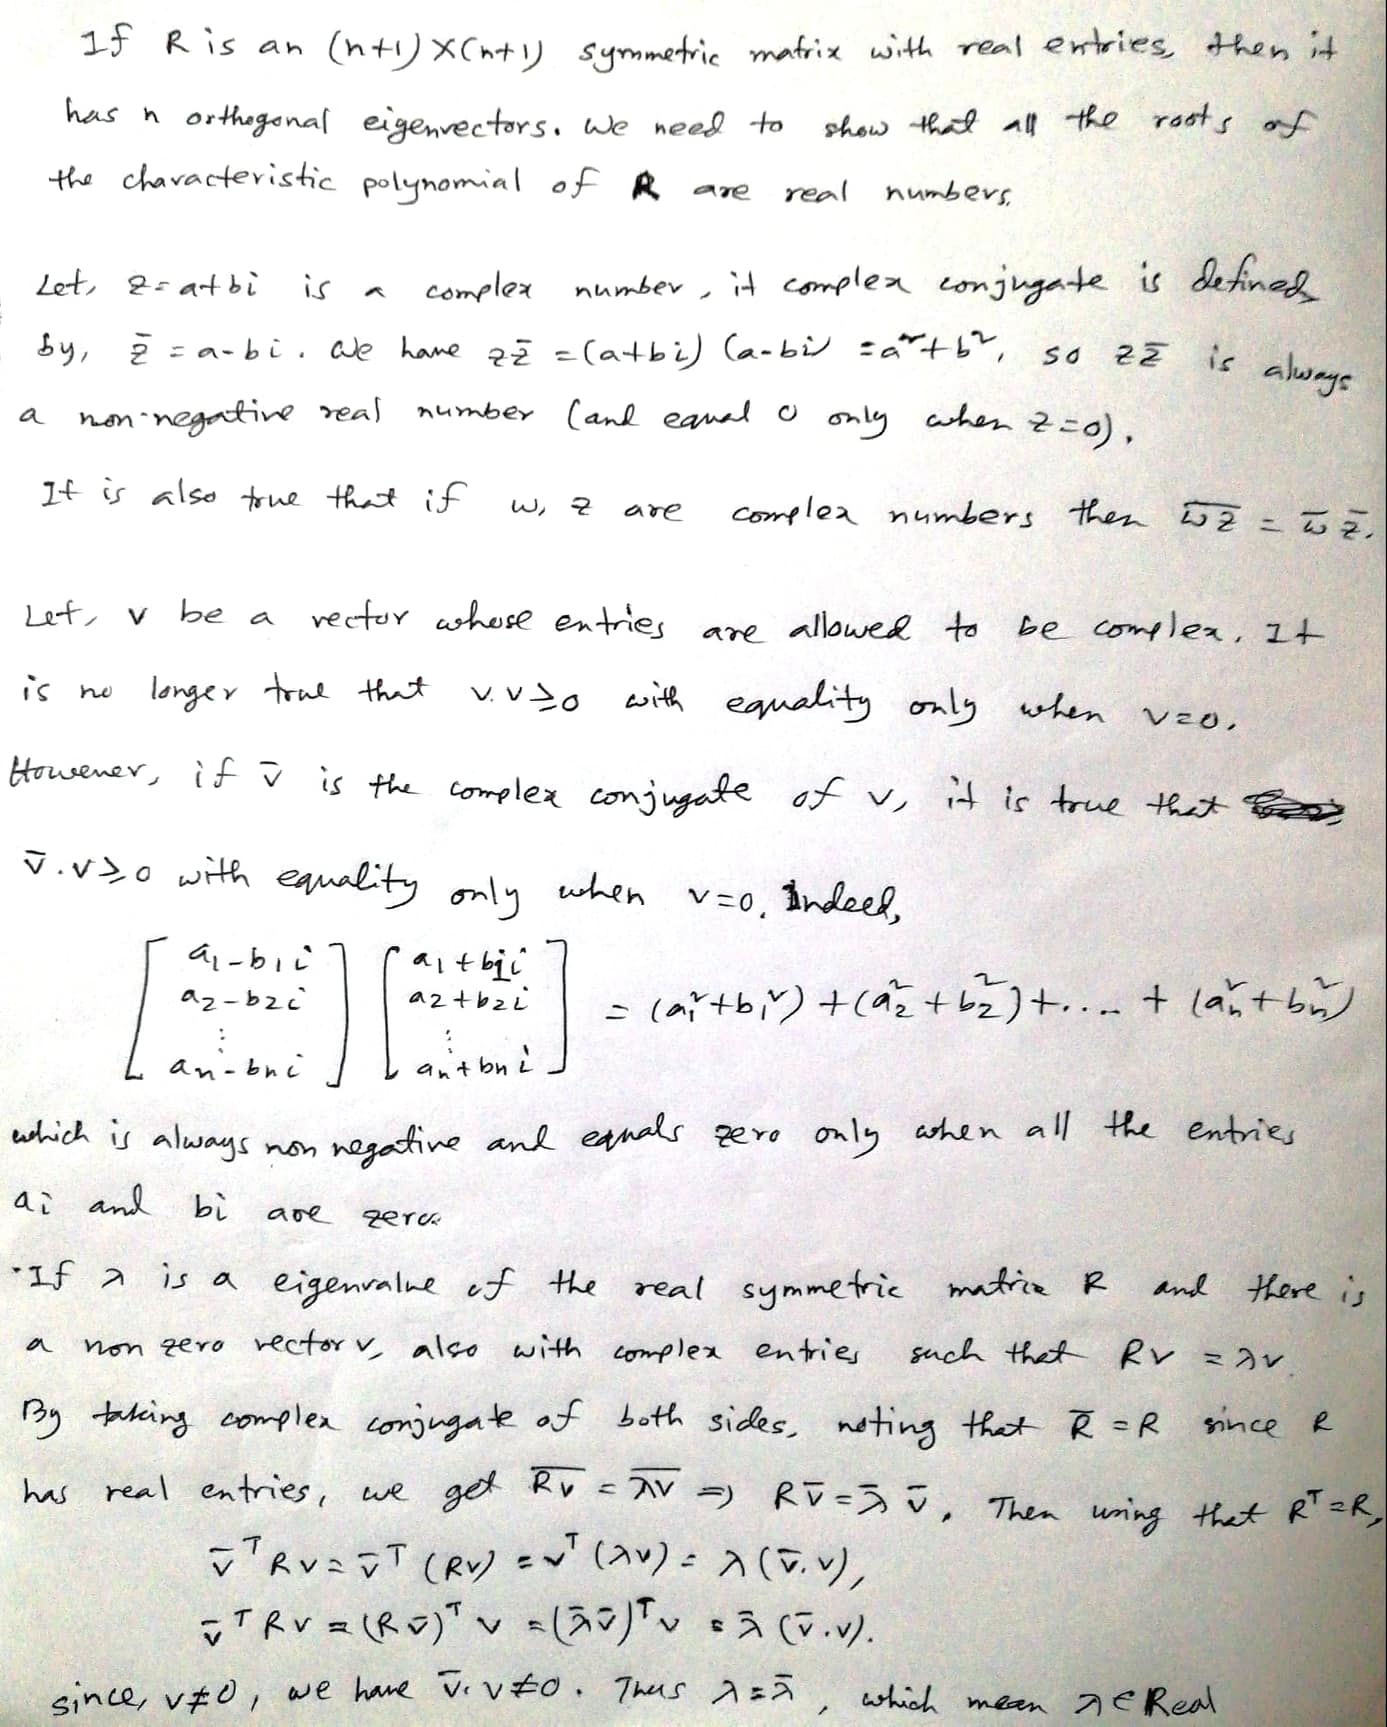 If R is an (n+1)×(n+1) symmetric matrix with real entries, then it
has n orthogonal eigenvectors. We need to show that all the roots of
the characteristic polynomial of R are real numbers.
Let, z=a+bi is a complex number, it complex conjugate is defined
by, z̄ = a-bi. We have zz̄ =(a+bi) (a-bi) =a²+b², so zz̄ is always
a non-negative real number (and equal 0 only when z=0).
It is also true that if w, z are complex numbers then \overline{wz} = w̄ z̄.
Let, v be a vector whose entries are allowed to be complex. It
is no longer true that v.v≥0 with equality only when v=0.
However, if v̄ is the complex conjugate of v, it is true that
v̄.v≥0 with equality only when v=0. Indeed,
[a₁-b₁i a₂-b₂i ⋮ aₙ-bₙi] [a₁+b₁i a₂+b₂i ⋮ aₙ+bₙi] = (a₁²+b₁²) +(a₂²+b₂²)+.... + (aₙ²+bₙ²)
which is always non negative and equals zero only when all the entries
ai and bi are zero.
If λ is a eigenvalue of the real symmetric matrix R and there is
a non zero vector v, also with complex entries such that Rv = λv.
By taking complex conjugate of both sides, noting that R̄ = R since R
has real entries, we get \overline{Rv} = \overline{λv} ⇒ Rv̄ = λ̄ v̄. Then using that Rᵀ=R,
v̄ᵀRv = v̄ᵀ(Rv) = vᵀ(λv) = λ(v̄.v),
v̄ᵀRv = (Rv̄)ᵀ v = (λ̄v̄)ᵀv = λ̄ (v̄.v).
since, v≠0, we have v̄.v≠0. Thus λ=λ̄, which mean λ∈Real